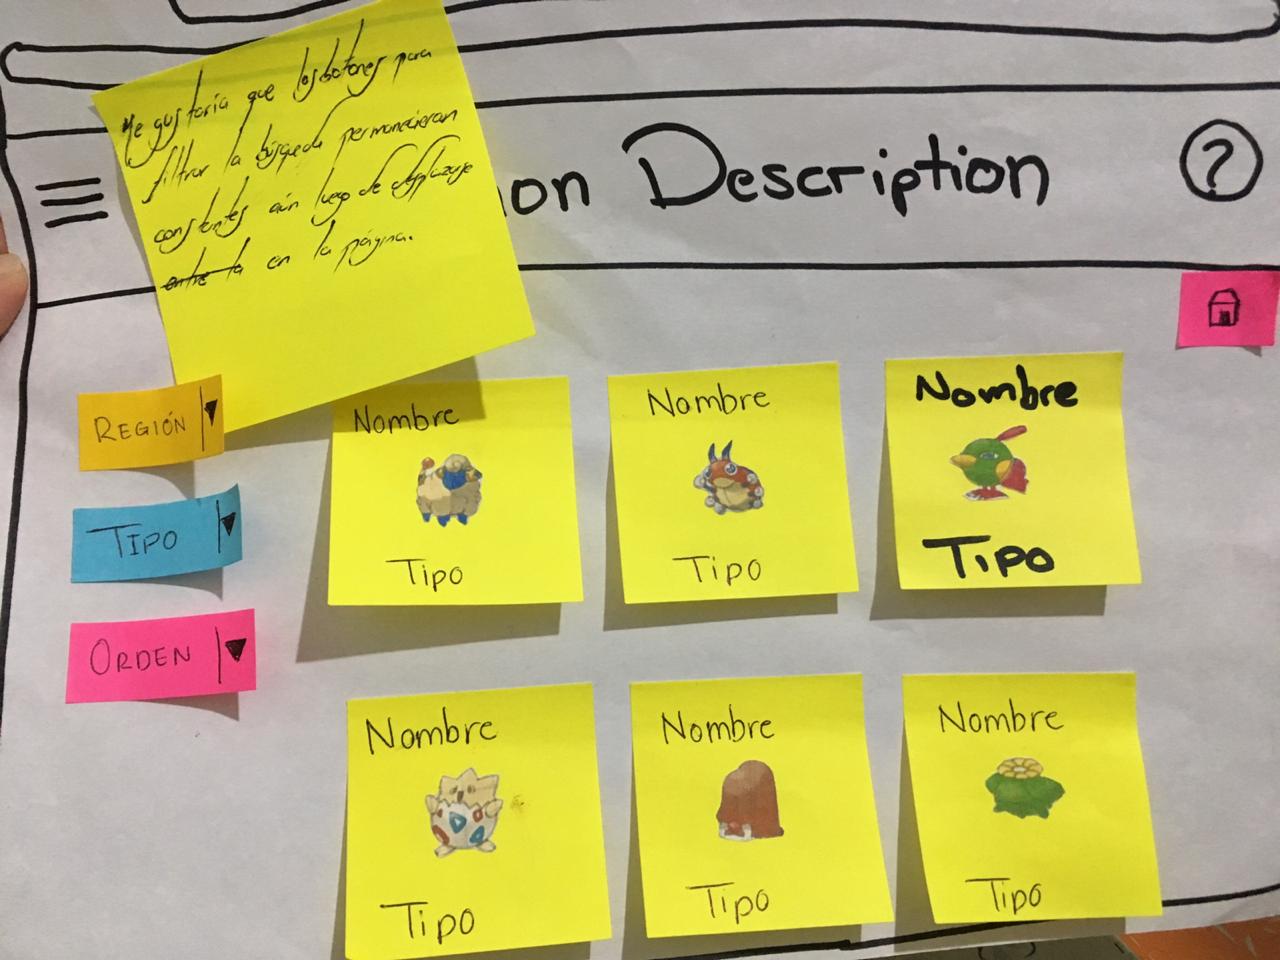 Me gustaría que los botones para
filtrar la búsqueda permanecieran
constantes aún luego de desplazarse
entre la en la página.
mon Description
?
REGIÓN
TIPO
ORDEN
Nombre
Tipo
Nombre
Tipo
Nombre
Tipo
Nombre
Tipo
Nombre
Tipo
Nombre
Tipo